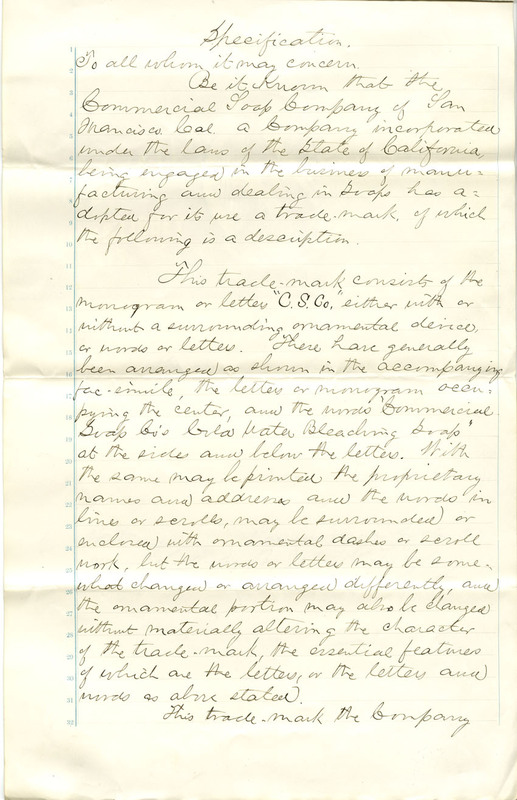 Specification.
To all whom it may concern
Be it Known that the
Commercial Soap Company of San
Francisco Cal. a Company incorporated
under the laws of the State of California,
being engaged in the business of manu-
facturing and dealing in Soaps has a-
dopted for its use a trade-mark, of which
the following is a description.
This trade-mark consist of the
monogram or letters "C.S.Co." either with or
without a surrounding ornamental device,
or words or letters. These have generally
been arranged as shown in the accompanying
fac-simile, the letters or monogram occu-
pying the center, and the words "Commercial
Soap Co's Cold Water Bleaching Soap"
at the sides and below the letters. With
the same may be printed the proprietary
names and addresses and the words in
lines or scrolls, may be surrounded or
enclosed with ornamental dashes or scroll
work, but the words or letters may be some-
what changed or arranged differently, and
the ornamental portion may also be changed
without materially altering the character
of the trade-mark, the essential features
of which are the letters, or the letters and
words as above stated.
This trade-mark the Company